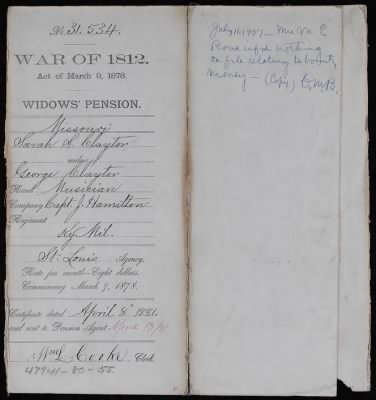 No. 31.534.
WAR OF 1812.
Act of March 9, 1878.
WIDOWS' PENSION.
Missouri
Sarah S. Claytor
widow
George Claytor
Rank Musician
Company Capt. J. Hamilton
Regiment
Ky Mil.
St. Louis Agency.
Rate per month—Eight dollars.
Commencing March 9, 1878.
Certificate dated April 8" 1881.
and sent to Pension Agent, April
Wm L Cooke Clerk.
47941-80-55
July 16 1907— Mrs. Wm E
infd nothing
on file relating to bounty
money — (Copy) C.M.B.